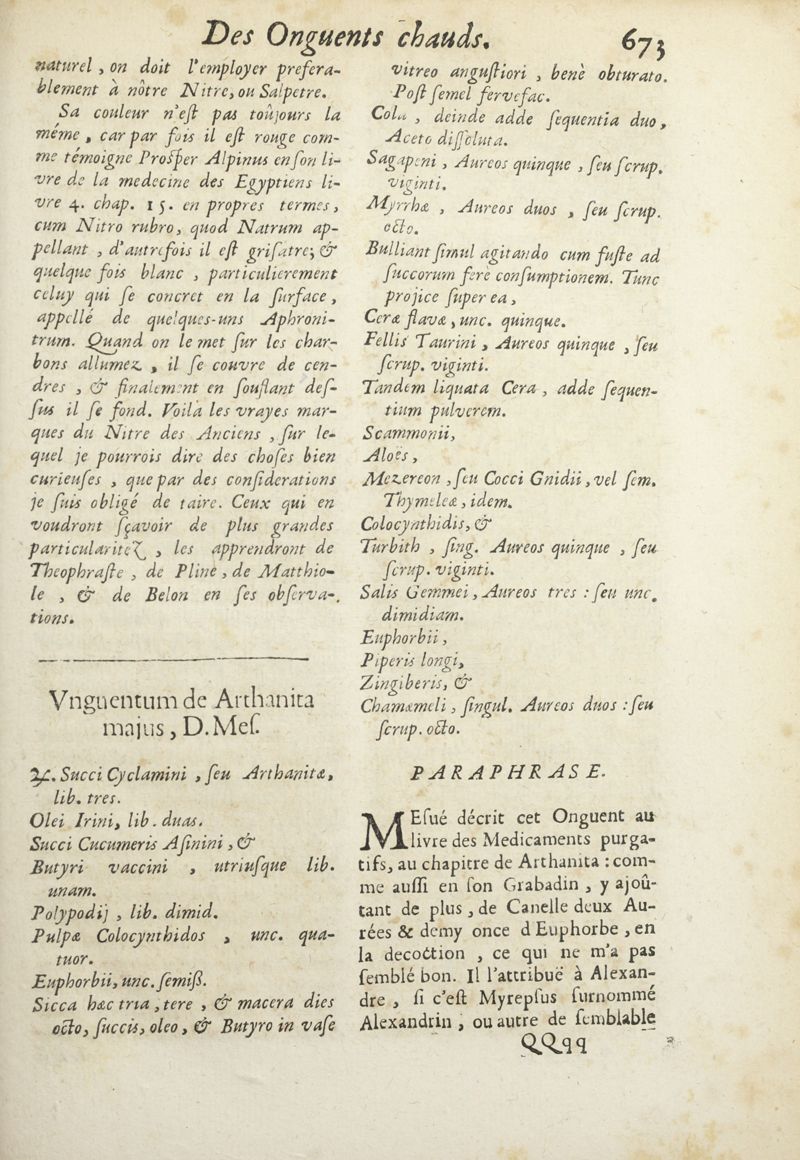 Des Onguents chauds. 673
naturel, on doit l'employer prefera-
blement à nôtre Nitre, ou Salpetre.
Sa couleur n'eſt pas toûjours la
méme, car par fois il eſt rouge com-
me témoigne Proſper Alpinus en ſon li-
vre de la medecine des Egyptiens li-
vre 4. chap. 15. en propres termes,
cum Nitro rubro, quod Natrum ap-
pellant, d'autrefois il eſt griſatre; &
quelque fois blanc, particulierement
celuy qui ſe concret en la ſurface,
appellé de quelques-uns Aphroni-
trum. Quand on le met ſur les char-
bons allumez, il ſe couvre de cen-
dres, & finalement en ſouflant deſ-
ſus il ſe fond. Voilà les vrayes mar-
ques du Nitre des Anciens, ſur le-
quel je pourrois dire des choſes bien
curieuſes, que par des conſiderations
je ſuis obligé de taire. Ceux qui en
voudront ſçavoir de plus grandes
particularitez, les apprendront de
Theophraſte, de Pline, de Matthio-
le, & de Belon en ſes obſerva-
tions.
Vnguentum de Arthanita
majus, D. Meſ.
℞. Succi Cyclamini, ſeu Arthanitæ,
lib. tres.
Olei Irini, lib. duas.
Succi Cucumeris Aſinini, &
Butyri vaccini, utriuſque lib.
unam.
Polypodij, lib. dimid.
Pulpæ Colocynthidos, unc. qua-
tuor.
Euphorbii, unc. ſemiß.
Sicca hæc tria, tere, & macera dies
octo, ſuccis, oleo, & Butyro in vaſe
vitreo anguſtiori, benè obturato.
Poſt ſemel fervefac.
Cola, deinde adde ſequentia duo,
Aceto diſſoluta.
Sagapeni, Aureos quinque, ſeu ſcrup.
viginti.
Myrrhæ, Aureos duos, ſeu ſcrup.
octo.
Bulliant ſimul agitando cum fuſte ad
ſuccorum ferè conſumptionem. Tunc
projice ſuper ea,
Ceræ flavæ, unc. quinque.
Fellis Taurini, Aureos quinque, ſeu
ſcrup. viginti.
Tandem liquata Cera, adde ſequen-
tium pulverem.
Scammonii,
Aloës,
Mezereon, ſeu Cocci Gnidii, vel ſem.
Thymeleæ, idem.
Colocynthidis, &
Turbith, ſing. Aureos quinque, ſeu
ſcrup. viginti.
Salis Gemmei, Aureos tres: ſeu unc.
dimidiam.
Euphorbii,
Piperis longi,
Zingiberis, &
Chamæmeli, ſingul. Aureos duos: ſeu
ſcrup. octo.
PARAPHRASE.
MEſué décrit cet Onguent au
livre des Medicaments purga-
tifs, au chapitre de Arthanita: com-
me auſſi en ſon Grabadin, y ajoû-
tant de plus, de Canelle deux Au-
rées & demy once d Euphorbe, en
la decoction, ce qui ne m'a pas
ſemblé bon. Il l'attribuë à Alexan-
dre, ſi c'eſt Myrepſus ſurnommé
Alexandrin, ou autre de ſemblable
QQqq